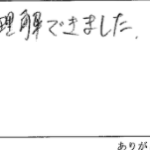 理解できました.
ありが